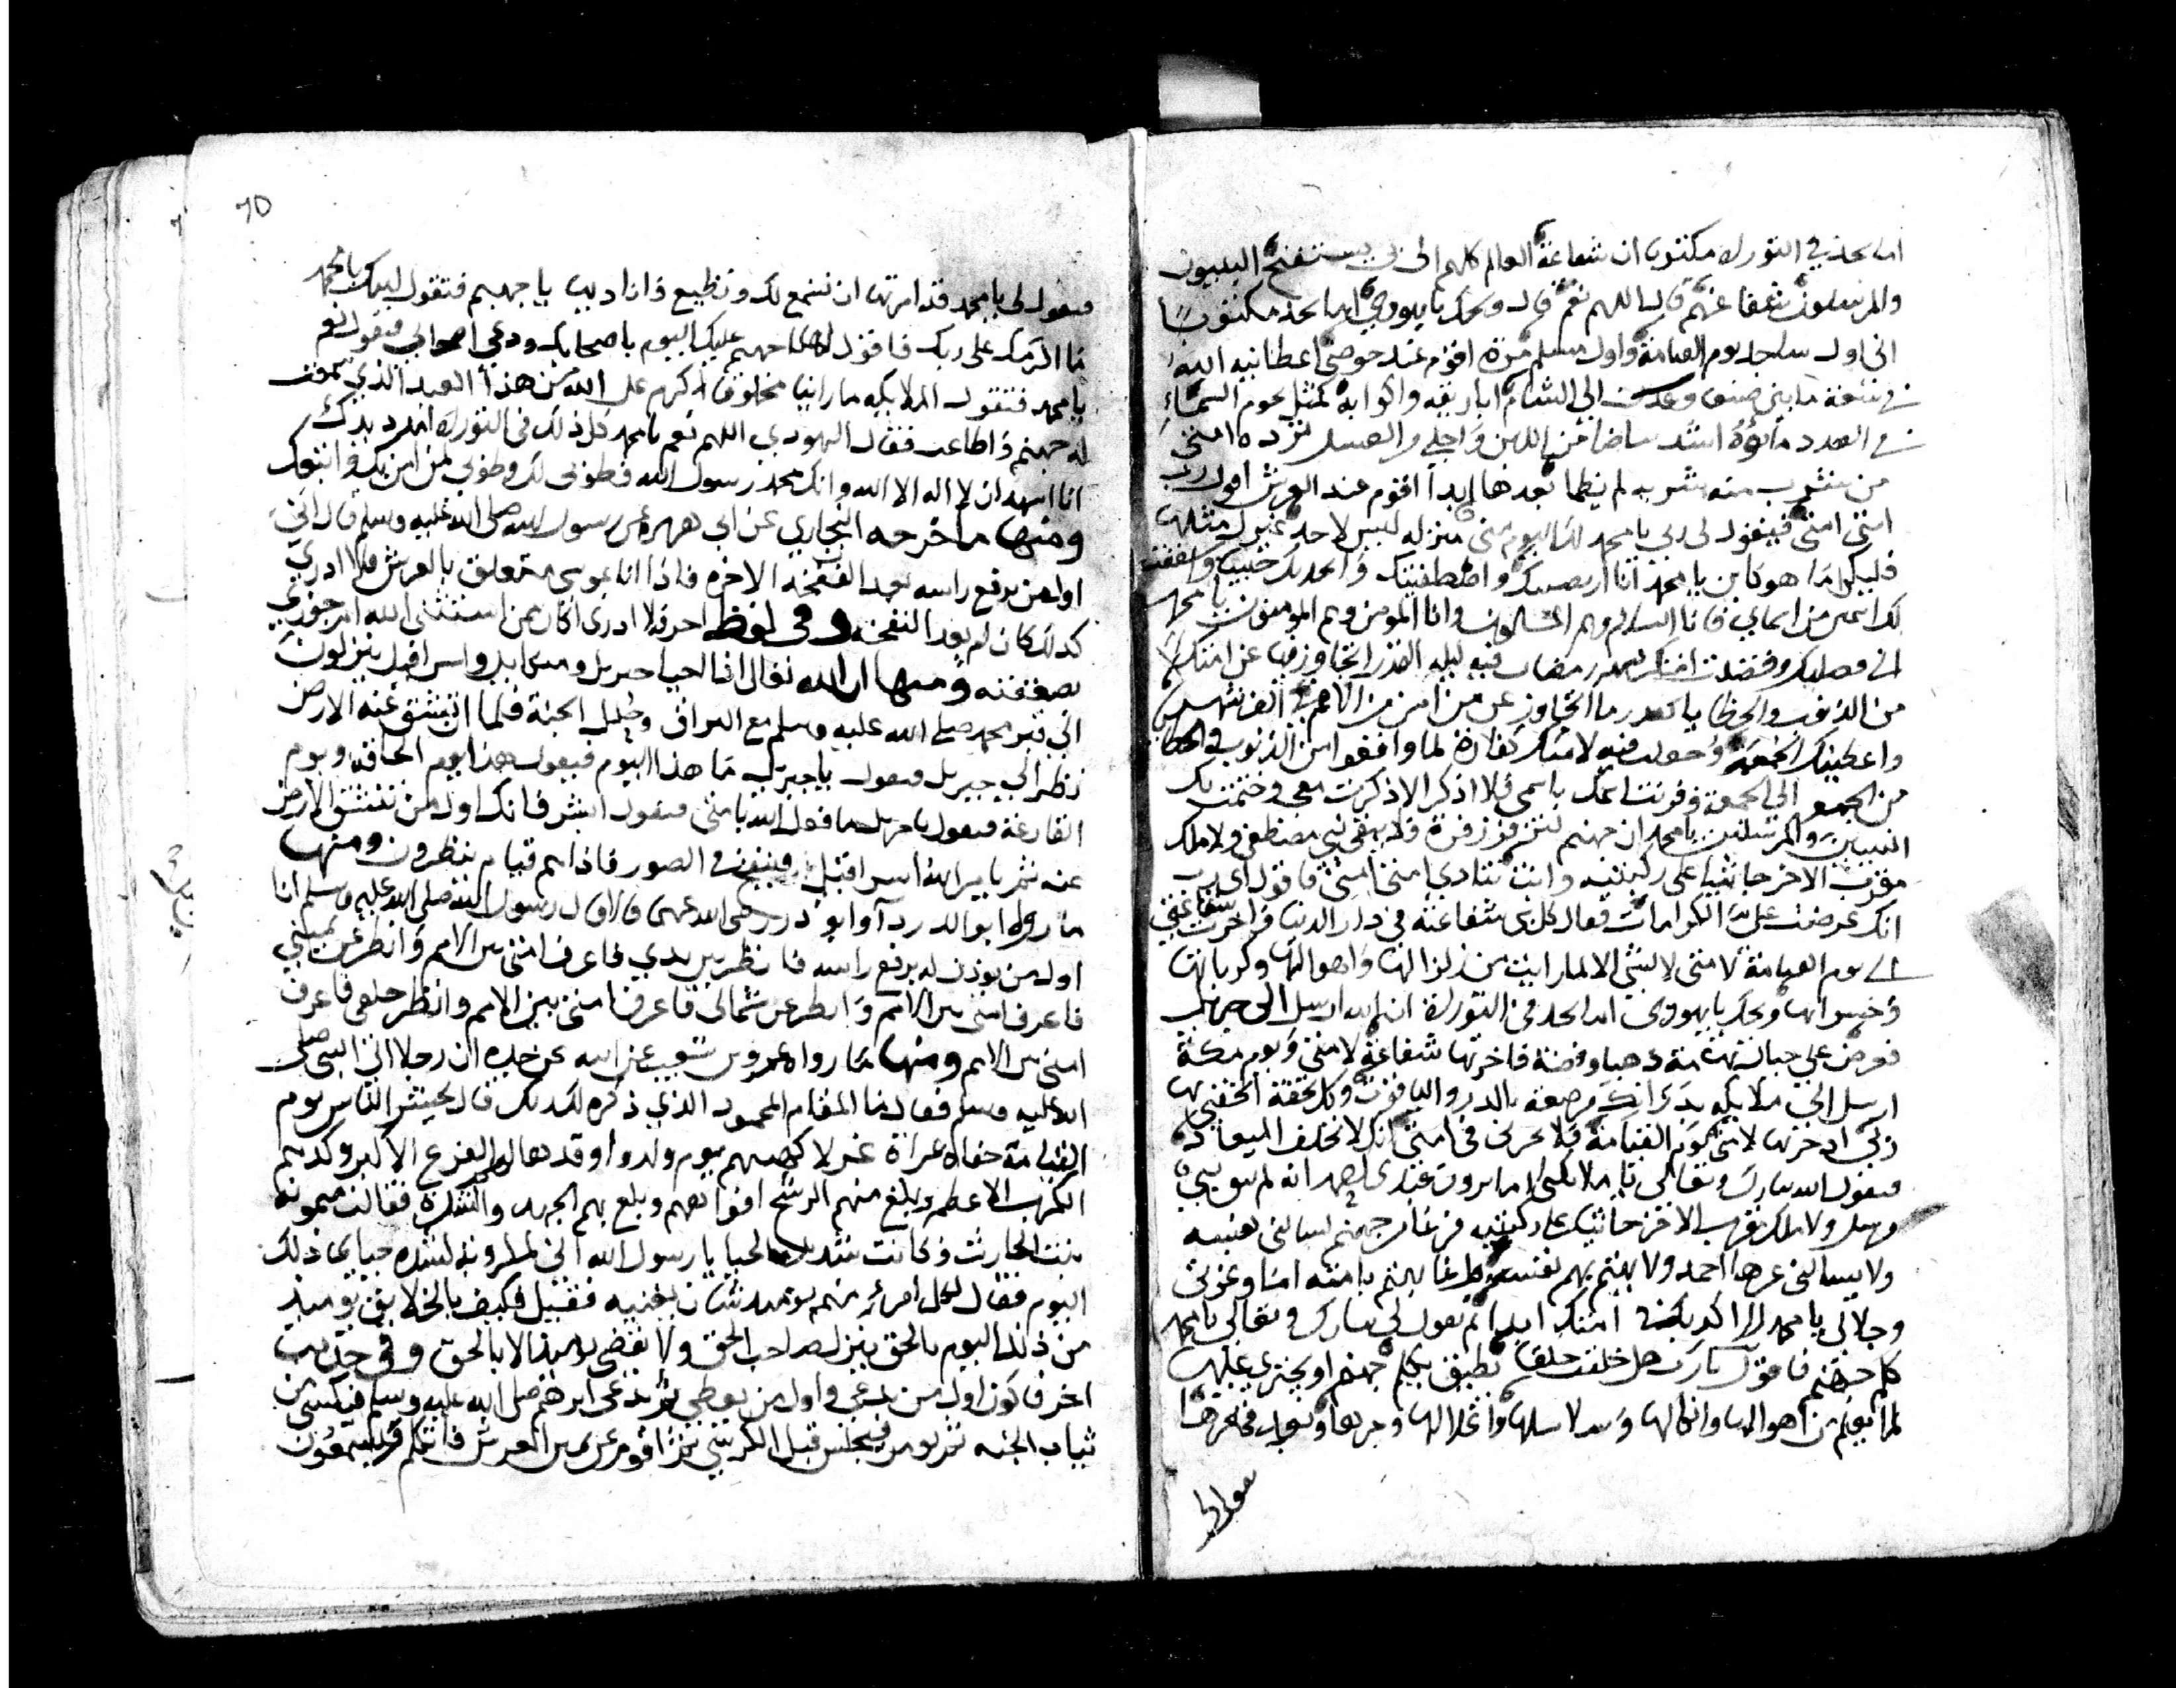 اما تجد في التوراة مكتوبا ان شفاعة العالم كلهم الى بي يستفتح النبيون
والمرسلون شفعا عنهم قال اللهم نعم قال ويحك يا يهودي اما تجد مكتوبا
اني اول ساجد يوم القيامة واول مسلم مرة اقوم عند حوضي اعطانيه الله
في سعة ما بين صنعا الى الشام اباريقه واكوابه كمثل نجوم السماء
في العدد ماؤه اشد بياضا من اللبن واحلى من العسل ترده امتي
من يشرب منه شربه لم يظما بعدها ابدا اقوم عند العرش اقول رب
امتي امتي فيقول لي ربي يا محمد لك اليوم مني منزله ليس لاحد غيرك مثلها
يا محمد انا واصطفيتك
لك اسمين من اسماي فانا السلام وهم المسلمون وانا المومن وهم المومنون يا محمد
رمضان فيه ليله القدر اتجاوز فيها عن امتك
من الذنوب والخطايا كقدر ما اتجاوز عن من امن من الامم في الف شهر
واعطيتك الجمعة وجعلت فيه لامتك كفارة لما واقعوا من الذنوب والخطا
من الجمعه الى الجمعة وقرنت اسمك باسمي فلا اذكر الا ذكرت معي وختمت بك
النبيين والمرسلين يا محمد ان جهنم لتزفر زفرة فلا يبقى نبي مصطفى ولا ملك
مقرب الا خر جاثيا على ركبتيه وانت تنادي امتي امتي فاقول اي رب
انك عرضت علي الكرامات فنال كل نبي شفاعته في دار الدنيا واخرت شفاعتي
الى يوم القيامة لامتي لا لشي الا لما رايت من زلزالها واهوالها وكرباتها
ويحك يا يهودي اما تجد في التوراة ان الله ارسل الى جبريل
فعرض علي جبال تهامة ذهبا وفضة فاخرتها شفاعة لامتي ويوم مكة
ارسل الي ملايكه مرصعة بالدر والياقوت وكل تحفة اتحفني بها
ربي ادخرتها لامتي يوم القيامة فلا تحزني في امتي انك لا تخلف الميعاد
فيقول الله تبارك وتعالى يا ملايكتي اما ترون عبدي محمد انه لم يبق نبي
مرسل ولا ملك مقرب الا خر جاثيا على ركبتيه فزعا من جهنم يسالني نفسه
ولا يسالني غيرها احمد ولا يهتم بهم نفسه يهتم بامته اما وعزتي
وجلالي يا محمد امتك ابدا ثم يقول لي تبارك وتعالى يا محمد
كلم جهنم فاقول يا رب هل خلقت خلقا يطيق يكلم جهنم او يجتري عليها
لما يعلم من اهوالها وانكالها وسلاسلها واغلالها وحرها وبعد قعرها
فيقول لي
70
فيقول لي يا محمد قد امرتها ان تسمع لك وتطيع فاناديها يا جهنم فتقول لبيك يا محمد
ما اكرمك على ربك فاقول لها يا جهنم عليك اليوم باصحابك ودعي اصحابي فتقول نعم
يا محمد فتقول الملايكه ما راينا مخلوقا اكرم على الله من هذا العبد الذي
له جهنم واطاعت فقال اليهودي اللهم نعم يا محمد كل ذلك في التوراة امدد يدك
انا اشهد ان لا اله الا الله وانك محمد رسول الله فطوبى لك وطوبى لمن امن بك واتبعك
ومنها ما اخرجه البخاري عن ابي هريرة عن رسول الله صلى الله عليه وسلم قال اني
اول من يرفع راسه بعد النفخة الاخره فاذا انا بموسى متعلق بالعرش فلا ادري
كذلك كان ام بعد النفخة وفي لفظ اخر فلا ادري اكان ممن استثنى الله ام جوزي
بصعقته ومنها ان الله تعالى اذا احيا جبريل وميكايل واسرافيل ينزلون
الى قبر محمد صلى الله عليه وسلم مع البراق وحلل الجنة فلما ان تنشق عنه الارض
نظر الى جبريل فيقول يا جبريل ما هذا اليوم فيقول هذا يوم الحاقة ويوم
القارعة فيقول يا جبريل ما فعل الله بامتي فيقول ابشر فانك اول من تنشق الارض
عنه ثم يامر الله اسرافيل فينفخ في الصور فاذا هم قيام ينظرون ومنها
ما رواه ابو الدرداء وابو ذر رضي الله عنهما قالا قال رسول الله صلى الله عليه وسلم انا
اول من يوذن له يرفع راسه فانظر بين يدي فاعرف امتي من الامم وانظر عن يميني
فاعرف امتي من الامم وانظر عن شمالي فاعرف امتي بين الامم وانظر خلفي فاعرف
امتي من الامم ومنها ما رواه عمرو بن شعيب عن ابيه عن جده ان رجلا اتى النبي صلى
الله عليه وسلم فقال ما المقام المحمود الذي ذكره لك ربك قال يحشر الناس يوم
القيامة حفاة عراة غرلا كهيئتهم يوم ولدوا وقد هالهم الفزع الاكبر وكدبهم
الكرب الاعظم وبلغ منهم الرشح افواههم وبلغ بهم الجهد والشدة فقالت ميمونة
بنت الحارث وكانت شديدة الحيا يا رسول الله اني لشدة حياي ذلك
اليوم فقال لكل امرئ منهم يومئذ شان يغنيه فقيل فكيف بالخلايق يوميذ
من ذلك اليوم بالحق ينزل صاحب الحق ولا يقضى يوميذ الا بالحق وفي حديث
اخر فاكون اول من يدعى واول من يعطى ثم يدعى ابرهيم صلى الله عليه وسلم فيكسى من
ثياب الجنه ثم يومر فيجلس قبل الكرسي ثم اقوم عن يمين العرش فاتكلم فيسمعون